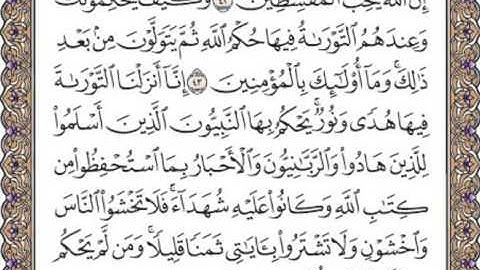 إِنَّ ٱللَّهَ يُحِبُّ ٱلْمُقْسِطِينَ ٤٢ وَكَيْفَ يُحَكِّمُونَكَ
وَعِندَهُمُ ٱلتَّوْرَىٰةُ فِيهَا حُكْمُ ٱللَّهِ ثُمَّ يَتَوَلَّوْنَ مِنۢ بَعْدِ
ذَٰلِكَ ۚ وَمَآ أُو۟لَـٰٓئِكَ بِٱلْمُؤْمِنِينَ ٤٣ إِنَّآ أَنزَلْنَا ٱلتَّوْرَىٰةَ
فِيهَا هُدًى وَنُورٌ ۚ يَحْكُمُ بِهَا ٱلنَّبِيُّونَ ٱلَّذِينَ أَسْلَمُوا۟
لِلَّذِينَ هَادُوا۟ وَٱلرَّبَّـٰنِيُّونَ وَٱلْأَحْبَارُ بِمَا ٱسْتُحْفِظُوا۟ مِن
كِتَـٰبِ ٱللَّهِ وَكَانُوا۟ عَلَيْهِ شُهَدَآءَ ۚ فَلَا تَخْشَوُا۟ ٱلنَّاسَ
وَٱخْشَوْنِ وَلَا تَشْتَرُوا۟ بِـَٔايَـٰتِى ثَمَنًا قَلِيلًا ۚ وَمَن لَّمْ يَحْكُم